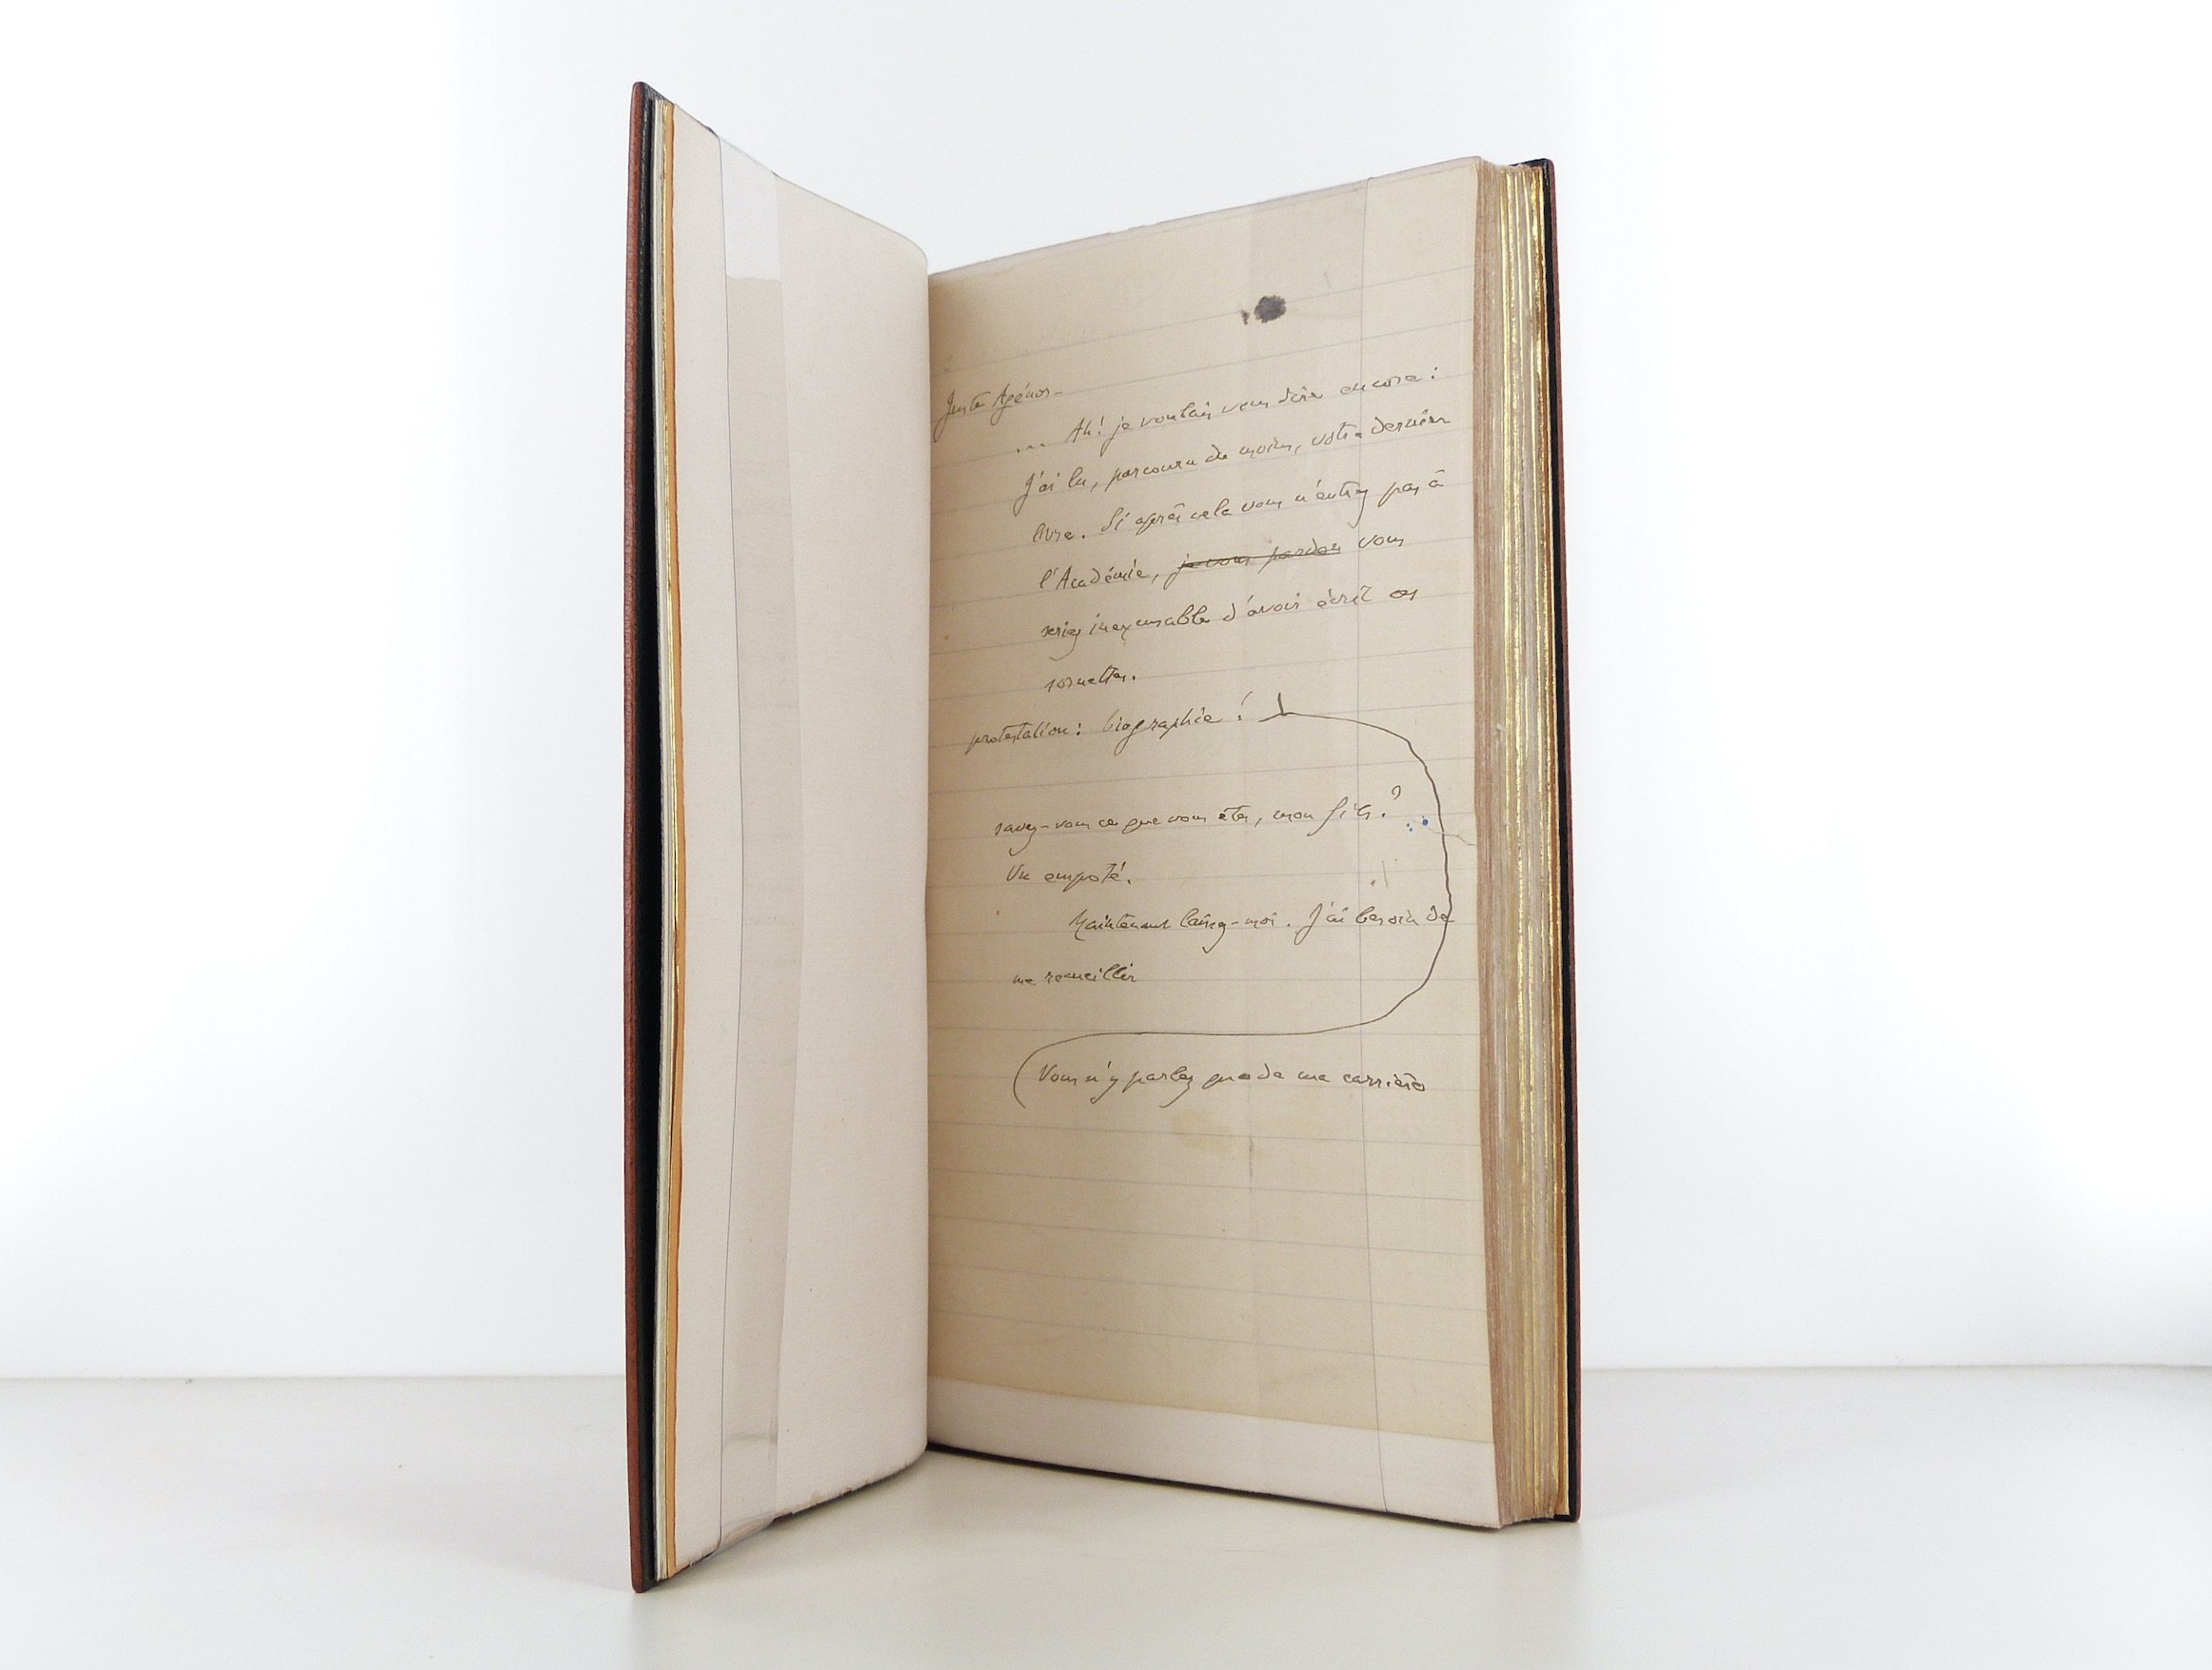 Juste Agénor –
... Ah! je voulais vous dire encore :
J'ai lu, parcouru du moins, votre dernier
livre. Si après cela vous n'entrez pas à
l'Académie, je vous pardon vous
seriez inexcusable d'avoir écrit ces
sornettes.
protestation : biographie !
savez-vous ce que vous êtes, mon fils ?
Un empoté.
Maintenant laissez-moi. J'ai besoin de
me recueillir
Vous n'y parlez que de ma carrière